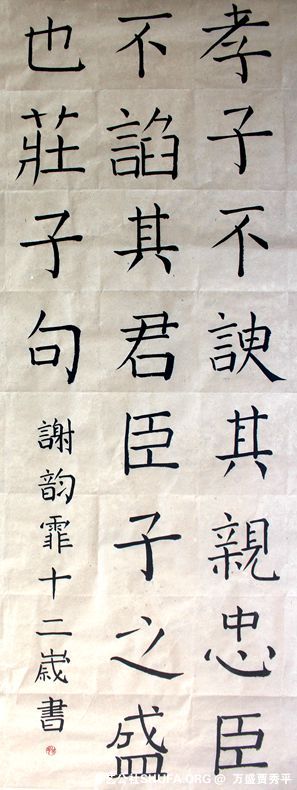 孝子不諛其親忠臣
不諂其君臣子之盛
也莊子句
謝韵霏十二歲書
SHUFA.ORG @ 万盛贾秀平